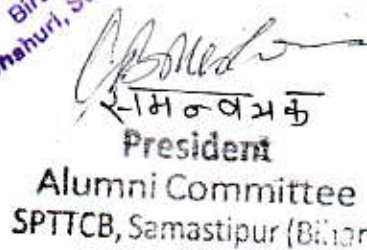 समन्वयक
President
Alumni Committee
SPTTCB, Samastipur (Bihar